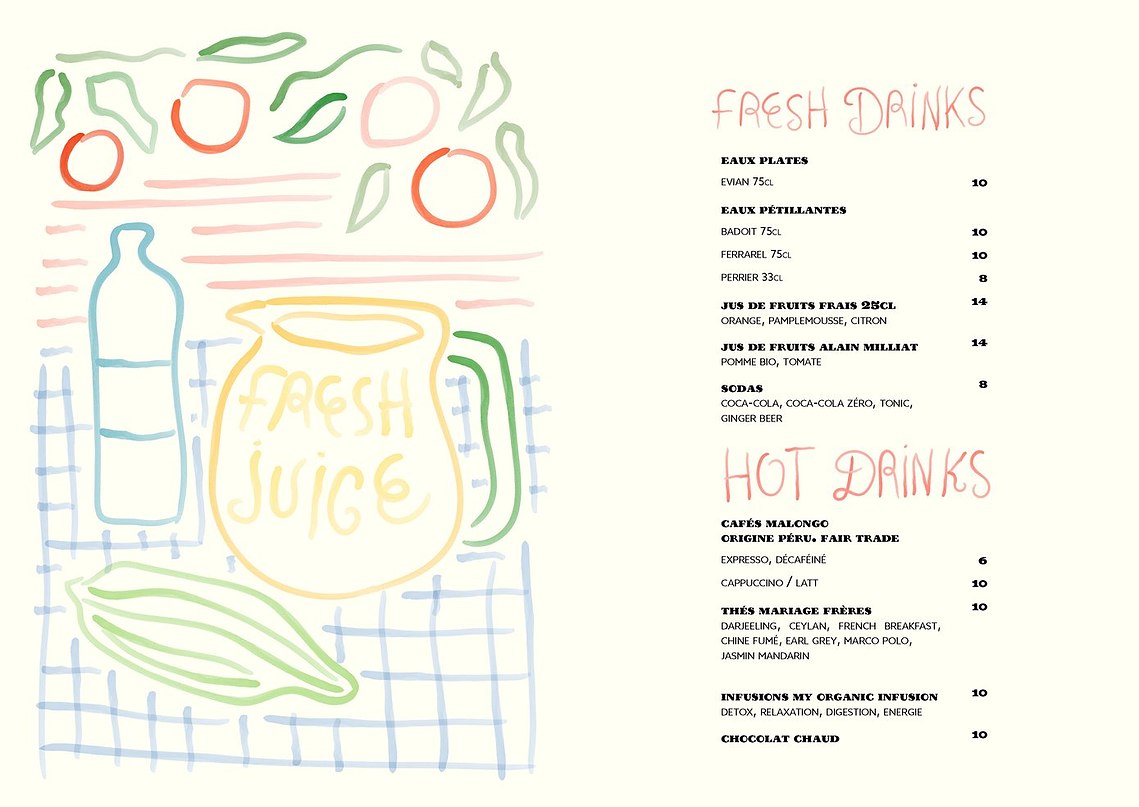 FRESH
JUICE
FRESH DRINKS
EAUX PLATES
EVIAN 75CL 10
EAUX PÉTILLANTES
BADOIT 75CL 10
FERRAREL 75CL 10
PERRIER 33CL 8
JUS DE FRUITS FRAIS 25CL 14
ORANGE, PAMPLEMOUSSE, CITRON
JUS DE FRUITS ALAIN MILLIAT 14
POMME BIO, TOMATE
SODAS 8
COCA-COLA, COCA-COLA ZÉRO, TONIC,
GINGER BEER
HOT DRINKS
CAFÉS MALONGO
ORIGINE PÉRU. FAIR TRADE
EXPRESSO, DÉCAFÉINÉ 6
CAPPUCCINO / LATT 10
THÉS MARIAGE FRÈRES 10
DARJEELING, CEYLAN, FRENCH BREAKFAST,
CHINE FUMÉ, EARL GREY, MARCO POLO,
JASMIN MANDARIN
INFUSIONS MY ORGANIC INFUSION 10
DETOX, RELAXATION, DIGESTION, ENERGIE
CHOCOLAT CHAUD 10